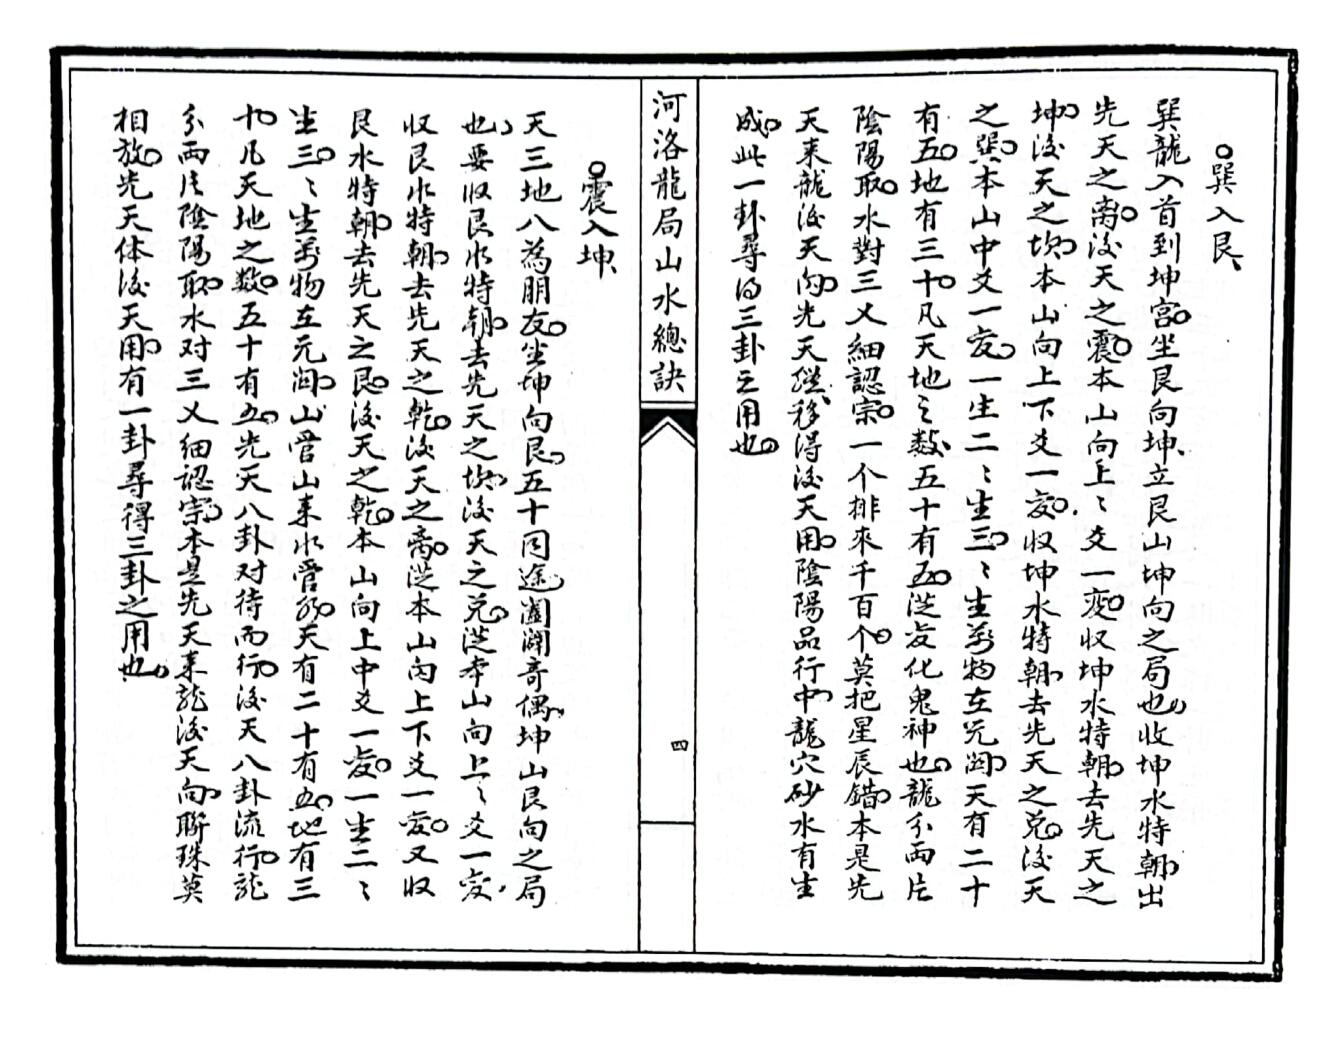 ○巽入艮、
巽龍入首到坤宮。坐艮向坤、立艮山坤向之局也、收坤水特朝、出
先天之离。後天之震。本山向上〻爻一变。收坤水特朝。去先天之
坤。後天之坎。本山向上下爻一变。收坤水特朝、去先天之兑。後天
之巽。本山中爻一变。一生二〻生三。〻生萬物在元関。天有二十
有五。地有三十。凡天地之數、五十有五。従变化鬼神也。龍分両片
陰陽取。水對三乂細認宗。一个排來千百个。莫把星辰錯。本是先
天来龍後天向。先天倐移得後天用。陰陽品行中、龍穴砂水有生
成。此一卦尋得三卦之用也。
河洛龍局山水總訣
四
○震入坤、
天三地八為朋友。坐坤向艮、五十同途、闔闢奇偶、坤山艮向之局
也、要收艮水特朝。去先天之坎、後天之兑。従本山向上〻爻一变、
收艮水特朝。去先天之乾。後天之离。従本山向上下爻一变。又收
艮水特朝。去先天之艮。後天之乾。本山向上中爻一变。一生二〻
生三。〻生萬物在元関。山管山来水管水。天有二十有五。地有三
十。凡天地之数。五十有五。先天八卦对待而行。後天八卦流行。龍
分両片陰陽取。水对三乂细認宗。本是先天来龍後天向。聯珠莫
相放。先天体後天用。有一卦尋得三卦之用也。